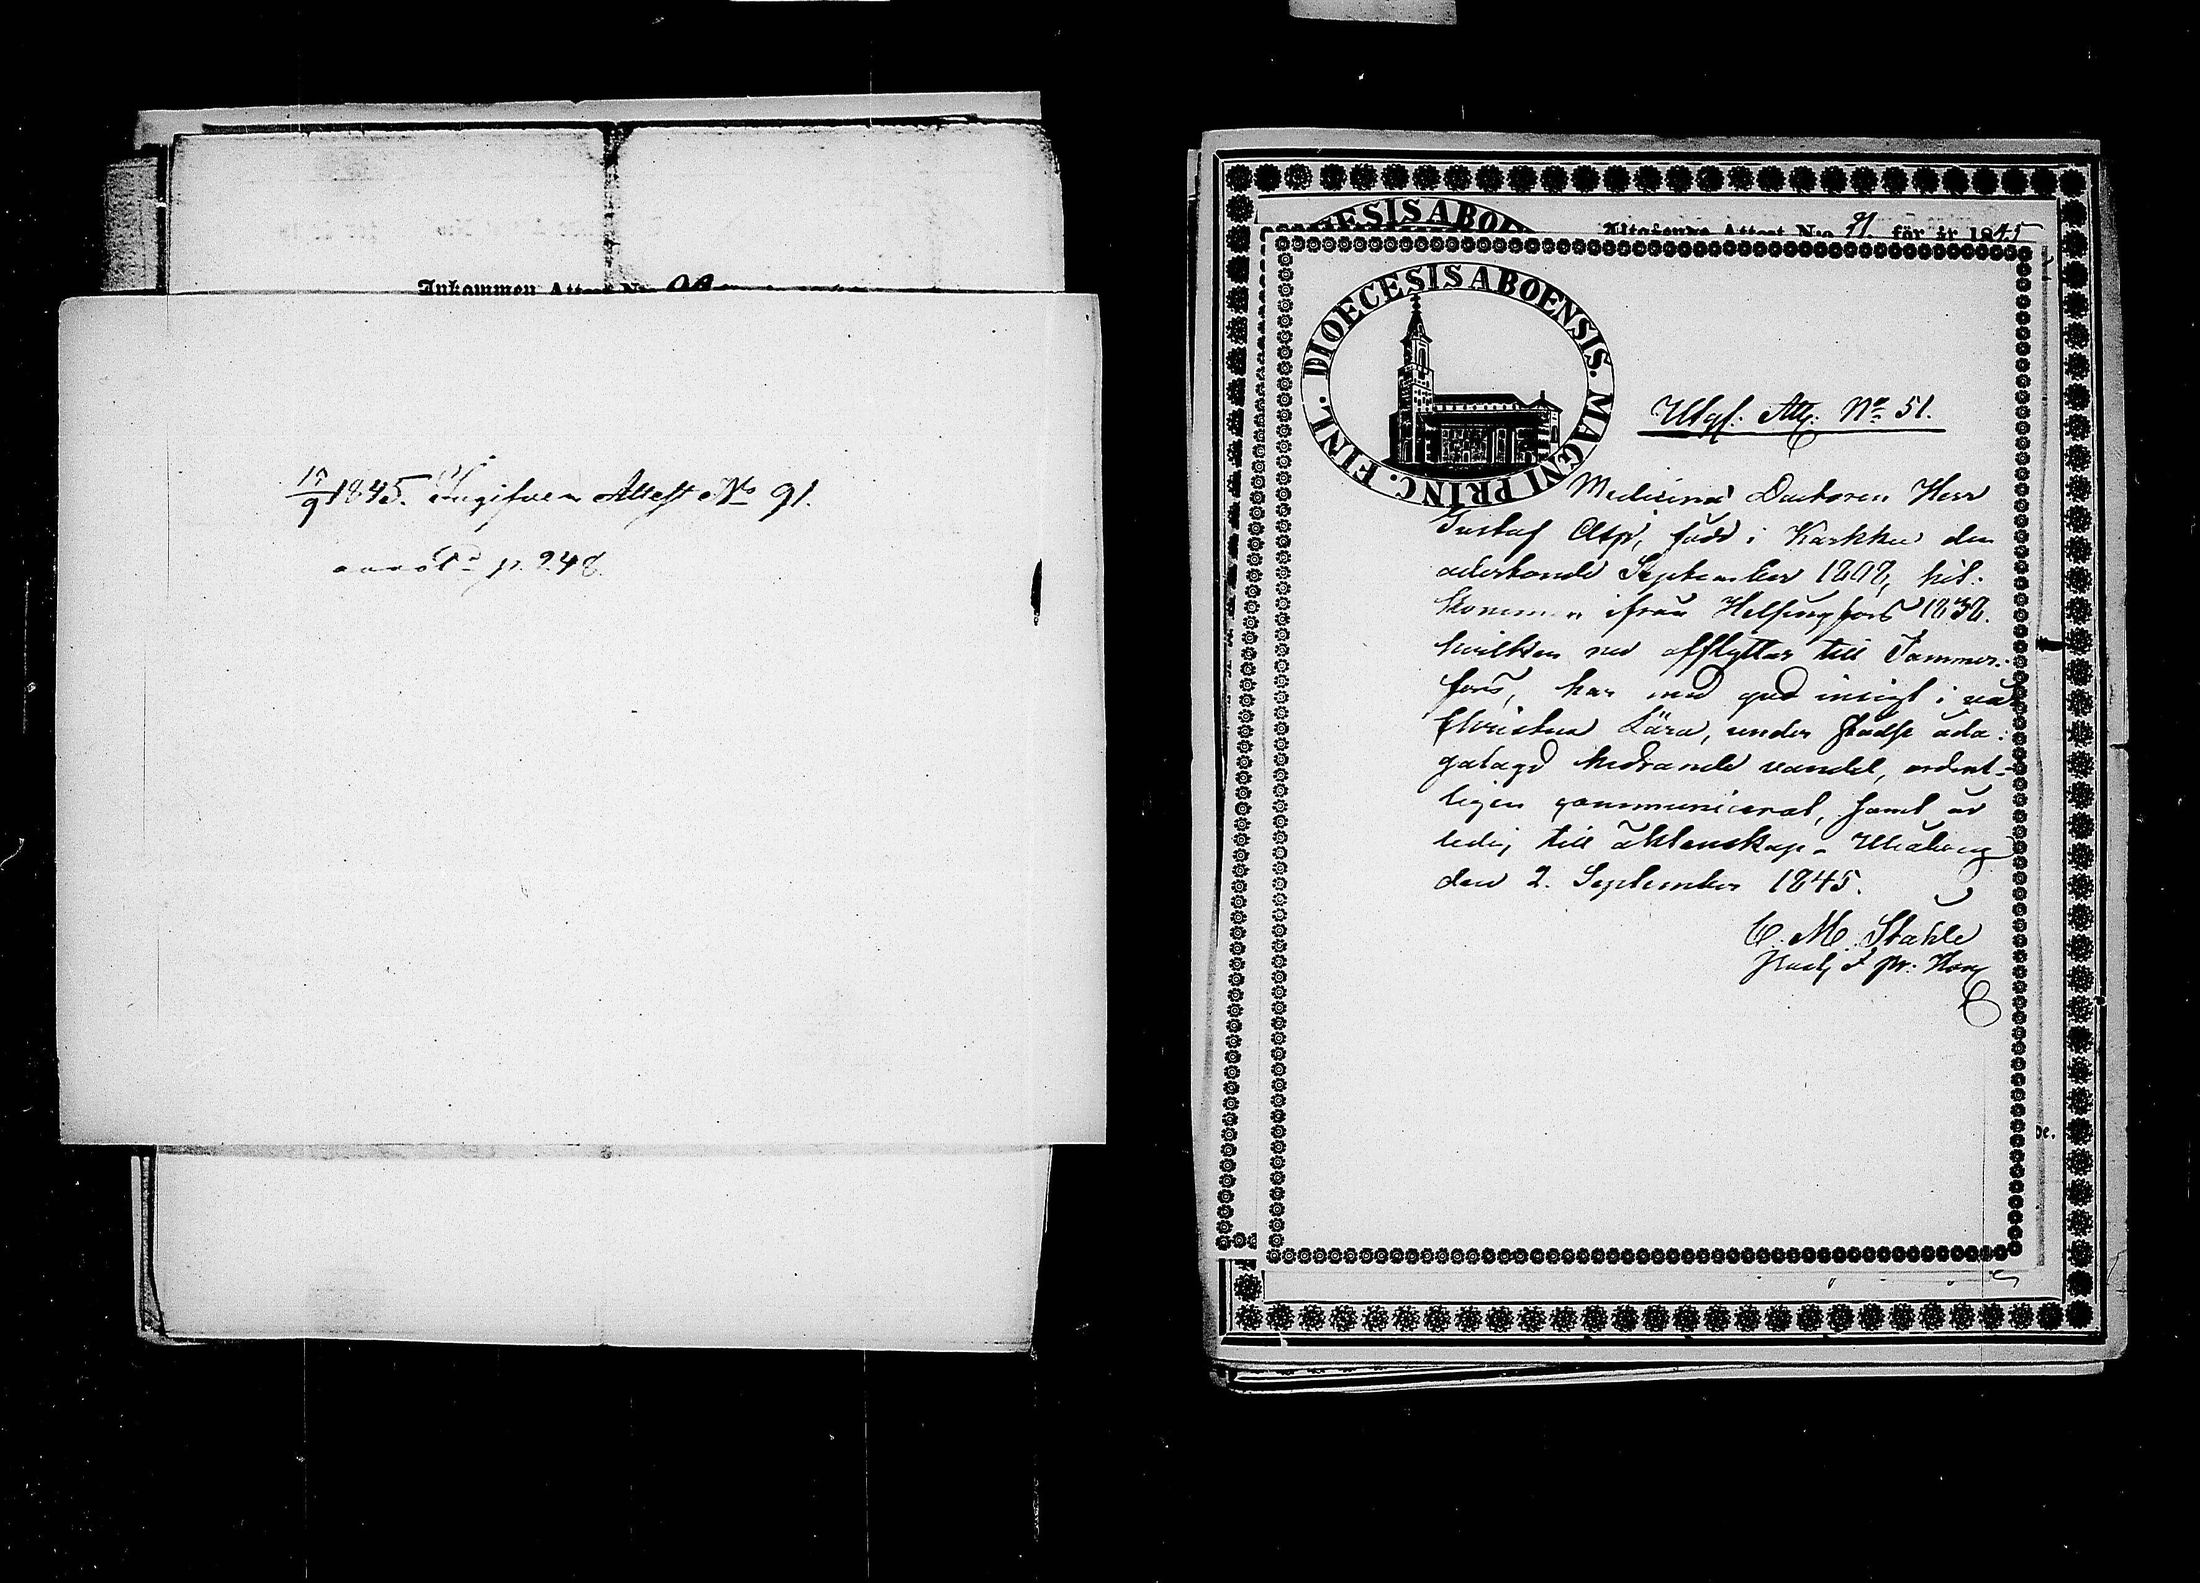 Inkommen Attest N:o
17/9 1845. Ingifven Attest No 91.
annot:d p. 248.
DIOECESIS ABOENSIS
Utgående Attest N:o 91. för år 1845
DIOECESIS ABOENSIS. MAGNI PRINC. FINL.
Utgf: Att: No 51.
Medicinæ Doctoren Herr
Gustaf Asp, född i Karkku den
adertonde September 1808, hit-
kommen ifrån Helsingfors 1838.
hvilken nu afflyttar till Tammer-
fors, har med god insigt i vår
Christna Lära, under städse åda-
galagd hedrande vandel, ordent-
ligen communicerat, samt är
ledig till äktenskap. Uleåborg
den 2. September 1845.
C. M. Stahle